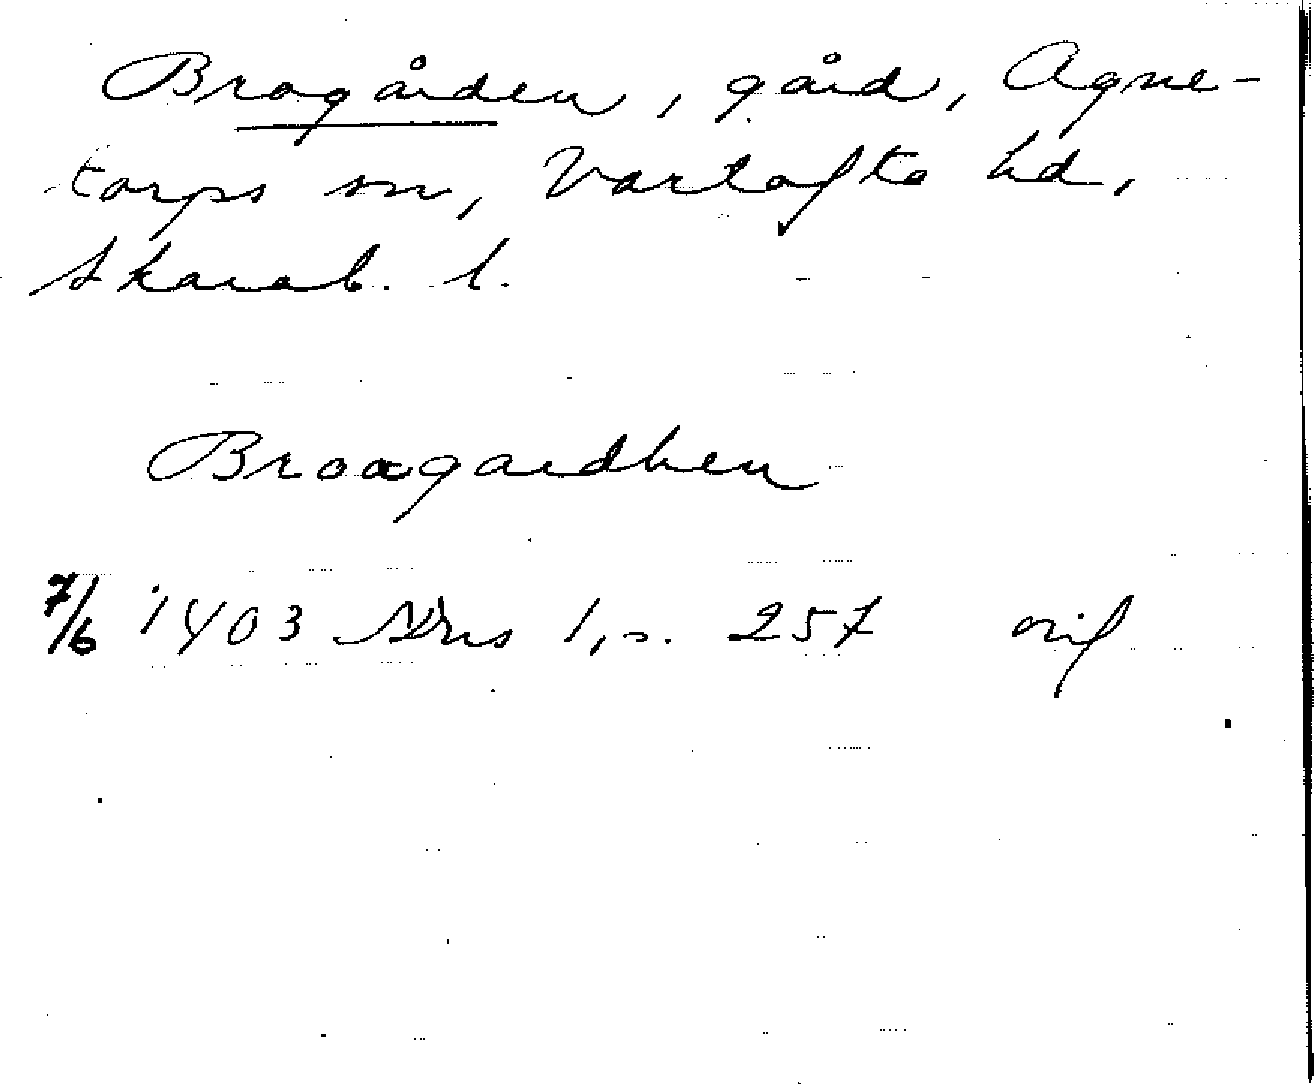 Brogården, gård, Agne-
torps sn, Vartofte hd,
Skarab. l.
Broagardhen
7/6 1403 SDns 1, s. 257 orig